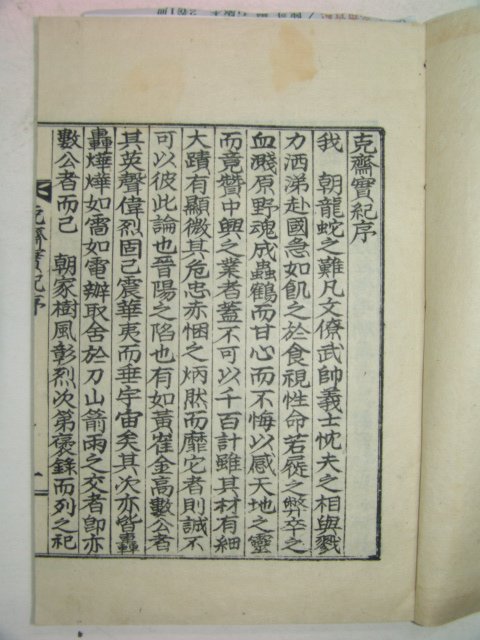 克齋實紀序
我 朝龍蛇之難凡文僚武帥義士忱夫之相與戮
力洒涕赴國急如飢之於食視性命若屣之弊卒之
血濺原野魂成蟲鶴而甘心而不悔以感天地之靈
而竟贊中興之業者蓋不可以千百計雖其材有細
大蹟有顯微其危忠赤悃之炳然而靡它者則誠不
可以彼此論也晉陽之陷也有如黃崔金高數公者
其英聲偉烈固已震華夷而垂宇宙矣其次亦皆轟
轟燁燁如雷如電辦取舍於刀山箭雨之交者卽亦
數公者而已 朝家樹風彰烈次第褒錄而列之祀
克齋實紀序
一